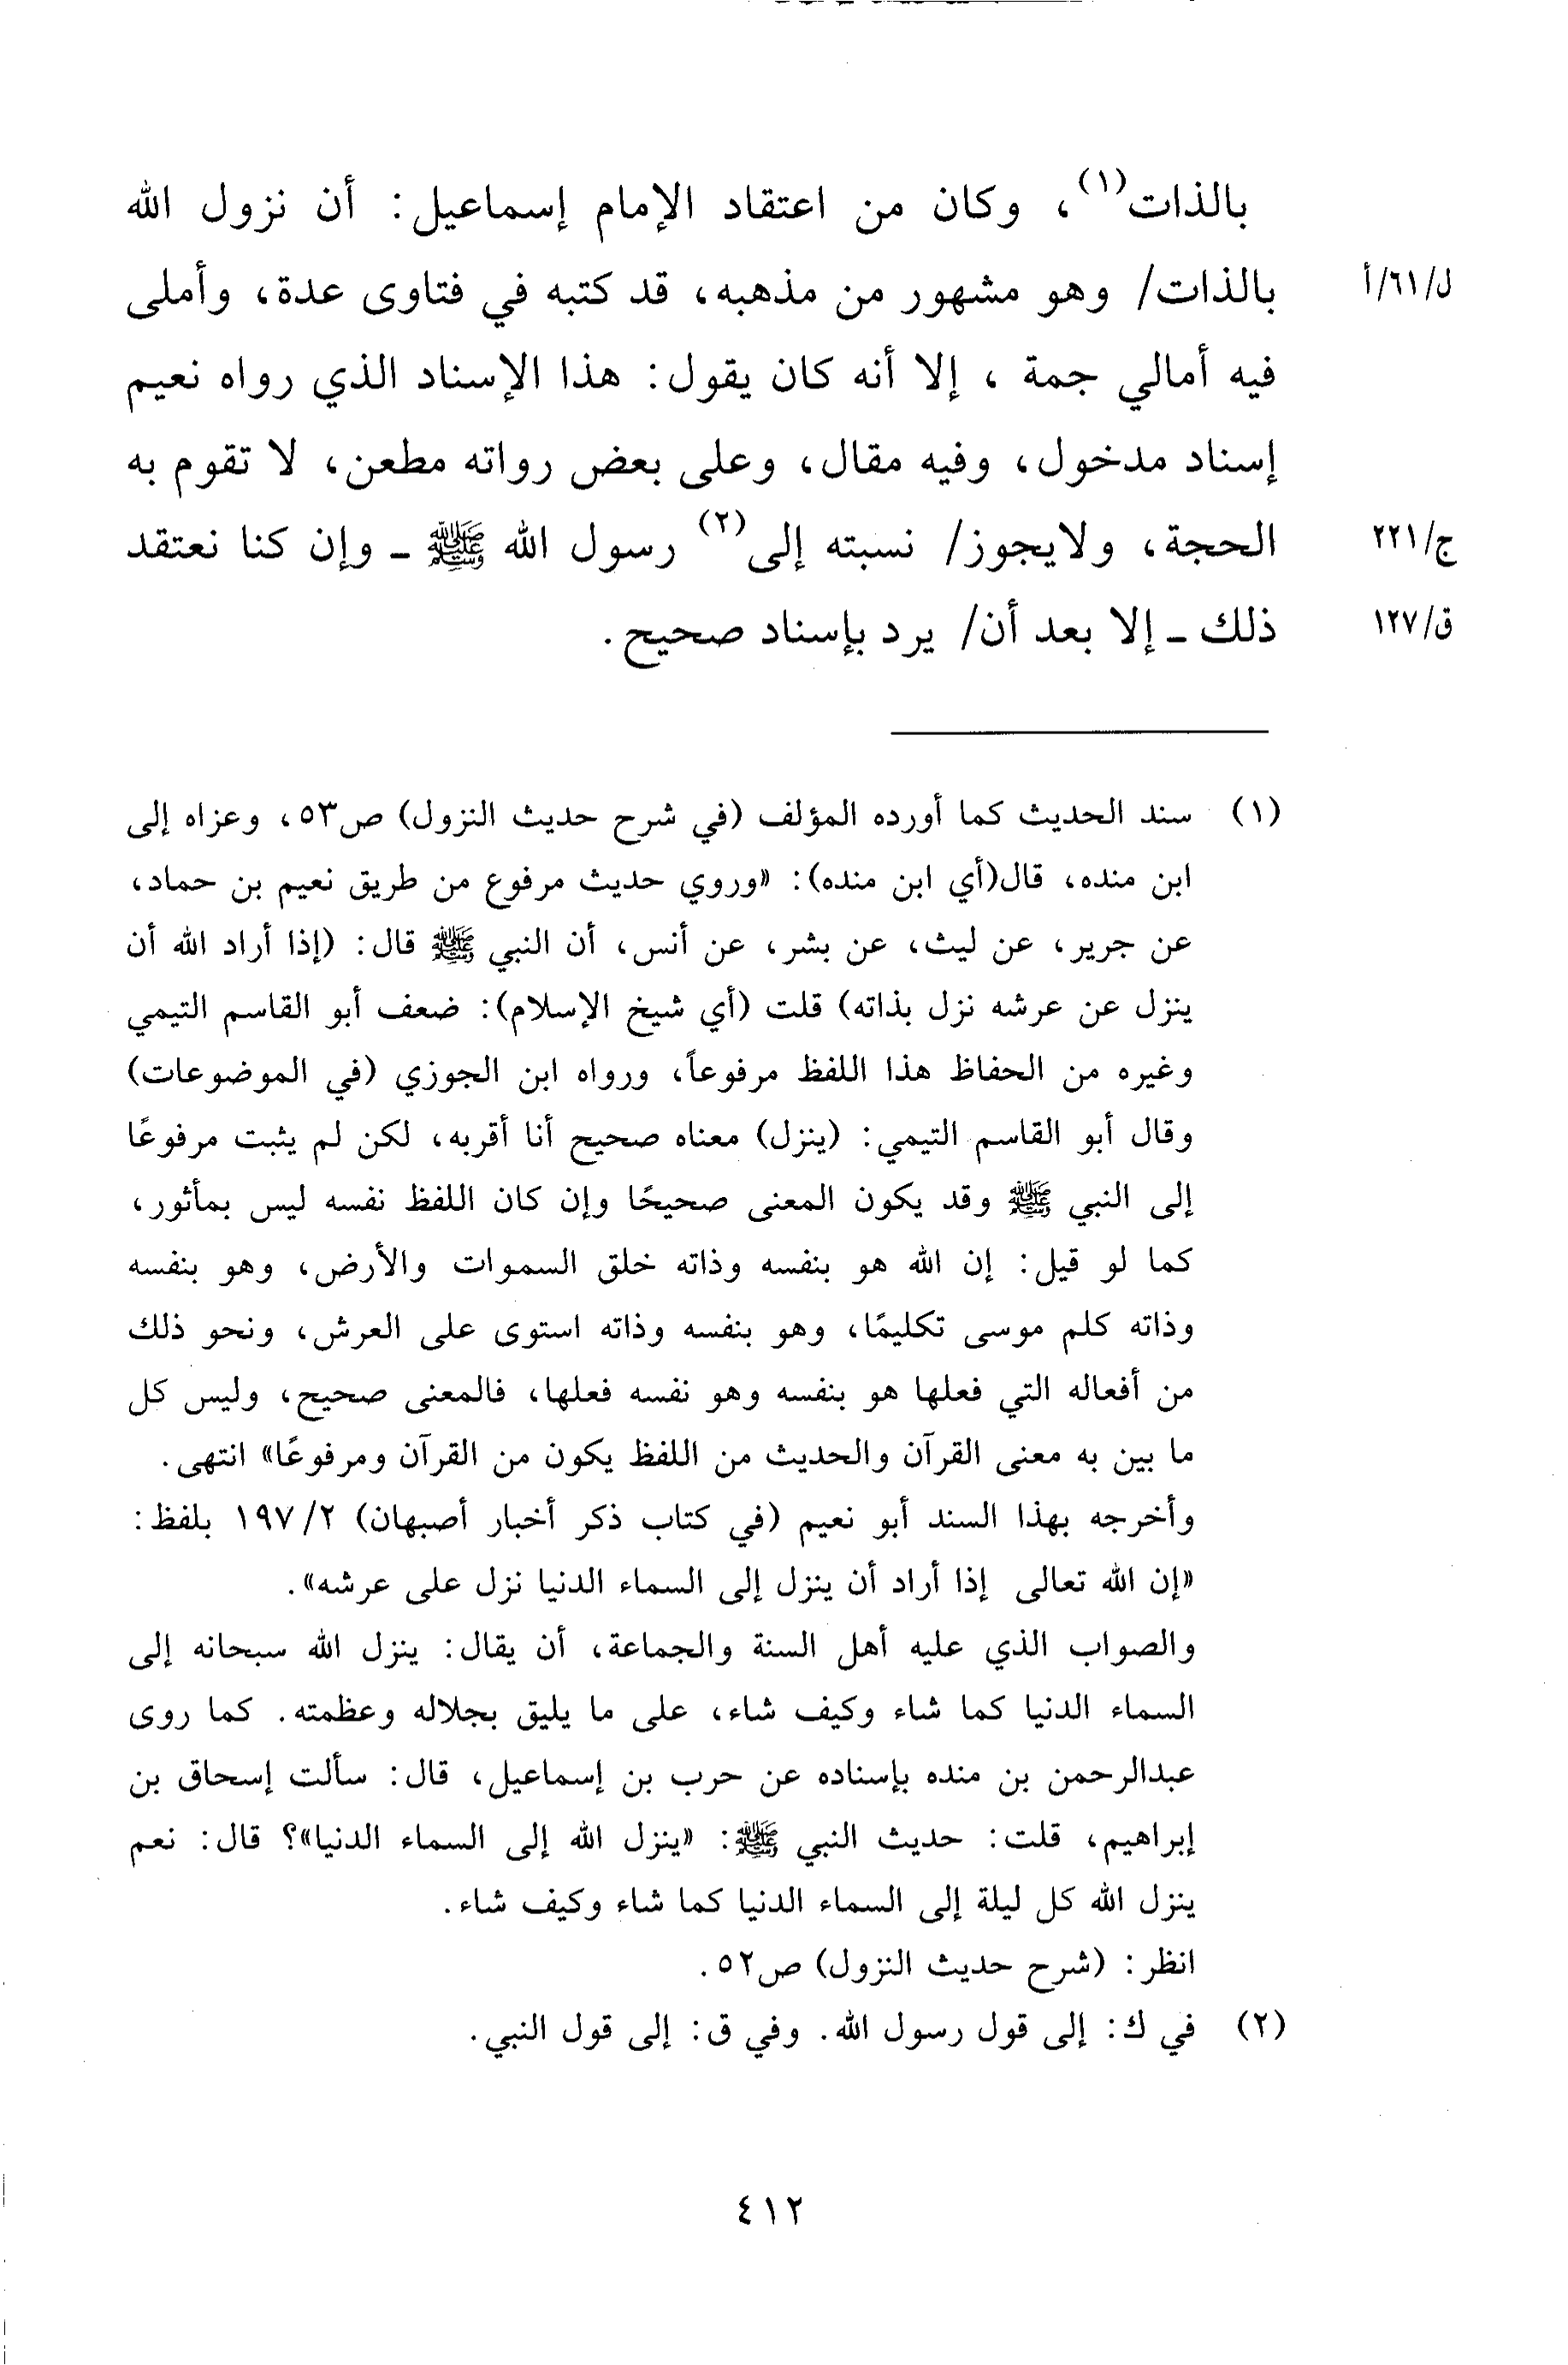 بالذات(١)، وكان من اعتقاد الإمام إسماعيل: أن نزول الله
بالذات/ وهو مشهور من مذهبه، قد كتبه في فتاوى عدة، وأملى
ل/٦١/أ
فيه أمالي جمة ، إلا أنه كان يقول: هذا الإسناد الذي رواه نعيم
إسناد مدخول، وفيه مقال، وعلى بعض رواته مطعن، لا تقوم به
الحجة، ولايجوز/ نسبته إلى(٢) رسول الله ﷺ ـ وإن كنا نعتقد
ج/٢٢١
ذلك ـ إلا بعد أن/ يرد بإسناد صحيح.
ق/١٢٧
(١) سند الحديث كما أورده المؤلف (في شرح حديث النزول) ص٥٣، وعزاه إلى
ابن منده، قال(أي ابن منده): «وروي حديث مرفوع من طريق نعيم بن حماد،
عن جرير، عن ليث، عن بشر، عن أنس، أن النبي ﷺ قال: (إذا أراد الله أن
ينزل عن عرشه نزل بذاته) قلت (أي شيخ الإسلام): ضعف أبو القاسم التيمي
وغيره من الحفاظ هذا اللفظ مرفوعاً، ورواه ابن الجوزي (في الموضوعات)
وقال أبو القاسم التيمي: (ينزل) معناه صحيح أنا أقربه، لكن لم يثبت مرفوعًا
إلى النبي ﷺ وقد يكون المعنى صحيحًا وإن كان اللفظ نفسه ليس بمأثور،
كما لو قيل: إن الله هو بنفسه وذاته خلق السموات والأرض، وهو بنفسه
وذاته كلم موسى تكليمًا، وهو بنفسه وذاته استوى على العرش، ونحو ذلك
من أفعاله التي فعلها هو بنفسه وهو نفسه فعلها، فالمعنى صحيح، وليس كل
ما بين به معنى القرآن والحديث من اللفظ يكون من القرآن ومرفوعًا» انتهى.
وأخرجه بهذا السند أبو نعيم (في كتاب ذكر أخبار أصبهان) ٢/ ١٩٧ بلفظ:
«إن الله تعالى إذا أراد أن ينزل إلى السماء الدنيا نزل على عرشه».
والصواب الذي عليه أهل السنة والجماعة، أن يقال: ينزل الله سبحانه إلى
السماء الدنيا كما شاء وكيف شاء، على ما يليق بجلاله وعظمته. كما روى
عبدالرحمن بن منده بإسناده عن حرب بن إسماعيل، قال: سألت إسحاق بن
إبراهيم، قلت: حديث النبي ﷺ: «ينزل الله إلى السماء الدنيا»؟ قال: نعم
ينزل الله كل ليلة إلى السماء الدنيا كما شاء وكيف شاء.
انظر: (شرح حديث النزول) ص٥٢.
(٢) في ك: إلى قول رسول الله. وفي ق: إلى قول النبي.
٤١٢